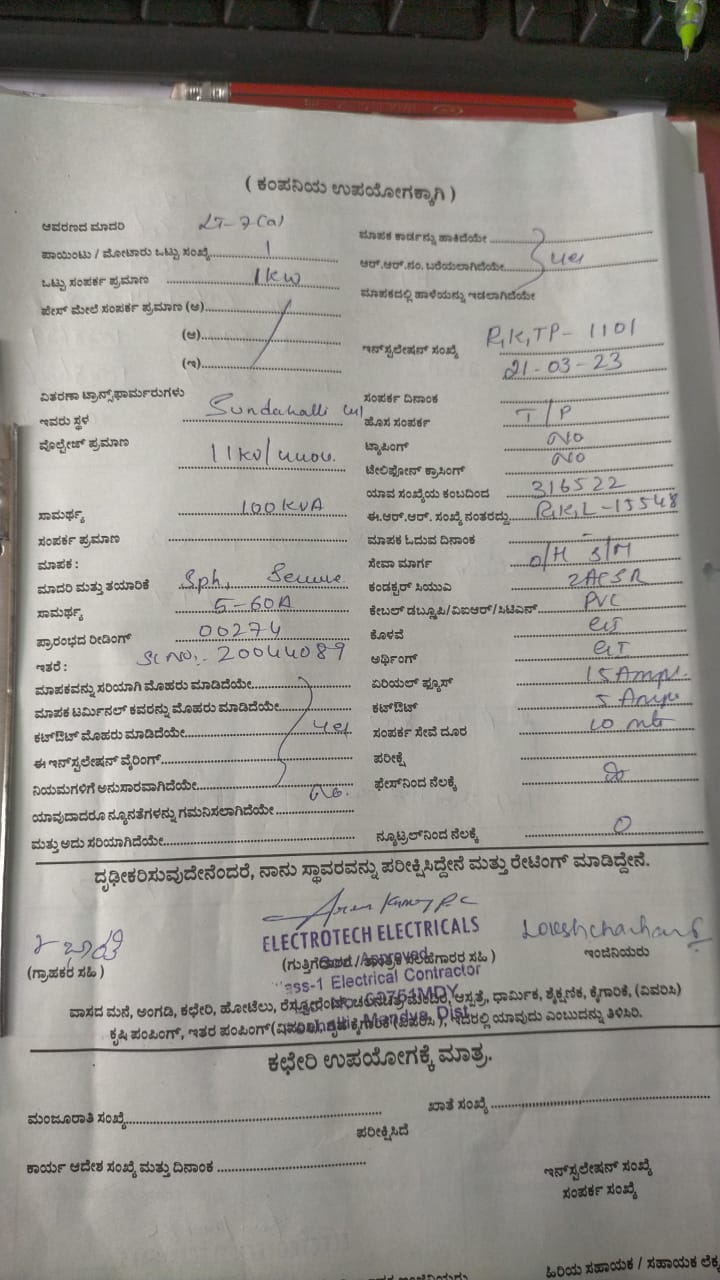 ( ಕಂಪನಿಯ ಉಪಯೋಗಕ್ಕಾಗಿ )
ಆವರಣದ ಮಾದರಿ LT-7(a)
ಪಾಯಿಂಟು / ಮೋಟಾರು ಒಟ್ಟು ಸಂಖ್ಯೆ 1
ಒಟ್ಟು ಸಂಪರ್ಕ ಪ್ರಮಾಣ 1KW
ಪೇಸ್ ಮೇಲೆ ಸಂಪರ್ಕ ಪ್ರಮಾಣ (ಅ)
(ಆ)
(ಇ)
ವಿತರಣಾ ಟ್ರಾನ್ಸ್‌ಫಾರ್ಮರುಗಳು
ಇವರು ಸ್ಥಳ Sundahalli
ವೊಲ್ಟೇಜ್ ಪ್ರಮಾಣ 11KV/440V.
ಸಾಮರ್ಥ್ಯ 100KVA
ಸಂಪರ್ಕ ಪ್ರಮಾಣ
ಮಾಪಕ :
ಮಾದರಿ ಮತ್ತು ತಯಾರಿಕೆ Sph,
ಸಾಮರ್ಥ್ಯ 5-60A
ಪ್ರಾರಂಭದ ರೀಡಿಂಗ್ 00274
ಇತರೆ : Sl No:- 20044089
ಮಾಪಕವನ್ನು ಸರಿಯಾಗಿ ಮೊಹರು ಮಾಡಿದೆಯೇ
ಮಾಪಕ ಟರ್ಮಿನಲ್ ಕವರನ್ನು ಮೊಹರು ಮಾಡಿದೆಯೇ
ಕಟ್‌ಔಟ್ ಮೊಹರು ಮಾಡಿದೆಯೇ yes
ಈ ಇನ್‌ಸ್ಪಲೇಷನ್ ವೈರಿಂಗ್
ನಿಯಮಗಳಿಗೆ ಅನುಸಾರವಾಗಿದೆಯೇ
ಯಾವುದಾದರೂ ನ್ಯೂನತೆಗಳನ್ನು ಗಮನಿಸಲಾಗಿದೆಯೇ No.
ಮತ್ತು ಅದು ಸರಿಯಾಗಿದೆಯೇ
ಮಾಪಕ ಕಾರ್ಡನ್ನು ಹಾಕಿದೆಯೇ
ಆರ್.ಆರ್.ನಂ. ಬರೆಯಲಾಗಿದೆಯೇ yes
ಮಾಪಕದಲ್ಲಿ ಹಾಳೆಯನ್ನು ಇಡಲಾಗಿದೆಯೇ
ಇನ್‌ಸ್ಪಲೇಷನ್ ಸಂಖ್ಯೆ R,K,TP-1101
21-03-23
ಸಂಪರ್ಕ ದಿನಾಂಕ
ಹೊಸ ಸಂಪರ್ಕ T/P
ಟ್ಯಾಪಿಂಗ್ No
ಟೆಲಿಫೋನ್ ಕ್ರಾಸಿಂಗ್ No
ಯಾವ ಸಂಖ್ಯೆಯ ಕಂಬದಿಂದ 316522
ಈ.ಆರ್.ಆರ್. ಸಂಖ್ಯೆ ನಂತರದ್ದು R,K,L-15548
ಮಾಪಕ ಓದುವ ದಿನಾಂಕ -
ಸೇವಾ ಮಾರ್ಗ O/H S/M
ಕಂಡಕ್ಟರ್ ಸಿಯುವಿ 2ACSR
ಕೇಬಲ್ ಡಬ್ಲೂಪಿ/ವಿಐಆರ್/ಸಿಟಿಎನ್ PVC
ಕೊಳವೆ GI
ಅರ್ಥಿಂಗ್ GI
ಏರಿಯಲ್ ಫ್ಯೂಸ್ 15 Amps.
ಕಟ್‌ಔಟ್ 5 Amps
ಸಂಪರ್ಕ ಸೇವೆ ದೂರ 10 mts
ಪರೀಕ್ಷೆ
ಫೇಸ್‌ನಿಂದ ನೆಲಕ್ಕೆ
ನ್ಯೂಟ್ರಲ್‌ನಿಂದ ನೆಲಕ್ಕೆ 0
ದೃಢೀಕರಿಸುವುದೇನೆಂದರೆ, ನಾನು ಸ್ಥಾವರವನ್ನು ಪರೀಕ್ಷಿಸಿದ್ದೇನೆ ಮತ್ತು ರೇಟಿಂಗ್ ಮಾಡಿದ್ದೇನೆ.
ELECTROTECH ELECTRICALS
(ಗ್ರಾಹಕರ ಸಹಿ )
ಇಂಜಿನಿಯರು
Class-1 Electrical Contractor
ಕೃಷಿ ಪಂಪಿಂಗ್, ಇತರ ಪಂಪಿಂಗ್ ಇದರಲ್ಲಿ ಯಾವುದು ಎಂಬುದನ್ನು ತಿಳಿಸಿರಿ.
ಕಛೇರಿ ಉಪಯೋಗಕ್ಕೆ ಮಾತ್ರ.
ಮಂಜೂರಾತಿ ಸಂಖ್ಯೆ
ಖಾತೆ ಸಂಖ್ಯೆ
ಪರೀಕ್ಷಿಸಿದೆ
ಕಾರ್ಯ ಆದೇಶ ಸಂಖ್ಯೆ ಮತ್ತು ದಿನಾಂಕ
ಇನ್‌ಸ್ಪಲೇಷನ್ ಸಂಖ್ಯೆ
ಸಂಪರ್ಕ ಸಂಖ್ಯೆ
ಹಿರಿಯ ಸಹಾಯಕ / ಸಹಾಯಕ